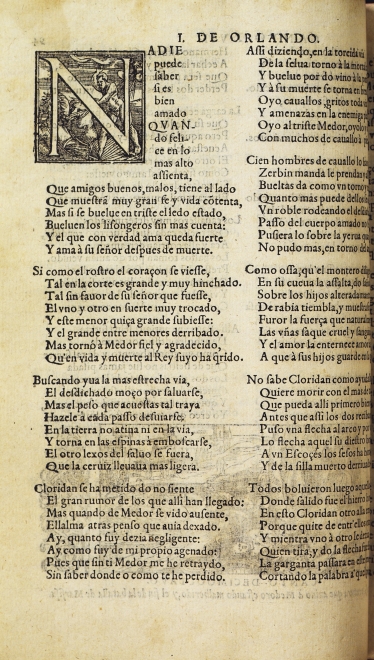 I. DE ORLANDO.
NADIE
puede
saber
si es
bien
amado
QVAN-
do feli-
ce en lo
mas alto
assienta,
Que amigos buenos, malos, tiene al lado
Que muestrã muy gran fe y vida cõtenta,
Mas si se buelue en triste el ledo estado,
Bueluen los lisongeros sin mas cuenta:
Y el que con verdad ama queda fuerte
Y ama à su señor despues de muerte.
Si como el rostro el coraçon se viesse,
Tal en la corte es grande y muy hinchado.
Tal sin fauor de su señor que fuesse,
El vno y otro en suerte muy trocado,
Y este menor quiça grande subiesse:
Y el grande entre menores derribado.
Mas tornò à Medor fiel y agradecido,
Qu'en vida y muerte al Rey suyo ha q̃rido.
Buscando yua la mas estrecha via,
El desdichado moço por saluarse,
Mas el peso que acuestas tal traya
Hazele à cada passo desuiarse:
En la tierra no atina ni en la via,
Y torna en las espinas à emboscarse,
El otro lexos del saluo se fuera,
Que la ceruiz lleuaua mas ligera.
Cloridan se ha metido do no siente
El gran rumor de los que alli han llegado:
Mas quando de Medor se vido ausente,
El alma atras penso que auia dexado.
Ay, quanto fuy dezia negligente:
Ay, como fuy de mi propio agenado:
Pues que sin ti Medor me he retraydo,
Sin saber donde o como te he perdido.
Assi diziendo, en la torcida
De la selua torno à la
Y buelue por do vino à la
Y à su muerte se torna en
Oyo cauallos, gritos toda
Y amenazas en la enemiga
Oyo al triste Medor, oyolo
Con muchos de cauallo à
Cien hombres de cauallo lo
Zerbin manda le prendan
Bueltas da como vn torno
Quanto mas puede dellos
Vn roble rodeando el
Passo del cuerpo amado
Pusiera lo sobre la yerua
No pudo mas, en torno del
Como ossa, qu'el montero
En su cueua la assalta, do
Sobre los hijos alterada
De rabia tiembla, y
Furor la fuerça que natura
Las vñas saque cruel y
Y el amor la enternece
A que à sus hijos guarde
No sabe Cloridan como
Quiere morir con el mas
Que pueda alli primero
Antes que assi los dos
Puso vna flecha al arco y
Lo flecha aquel su diestro
A vn Escoçes los sesos ha
Y de la silla muerto
Todos boluieron luego
Donde salido fue el hierro
En esto Cloridan otro
Porque quite de entr'ellos
Y mientra vno à otro
Quien tira, y do la flecha
La garganta passara en
Cortando la palabra à